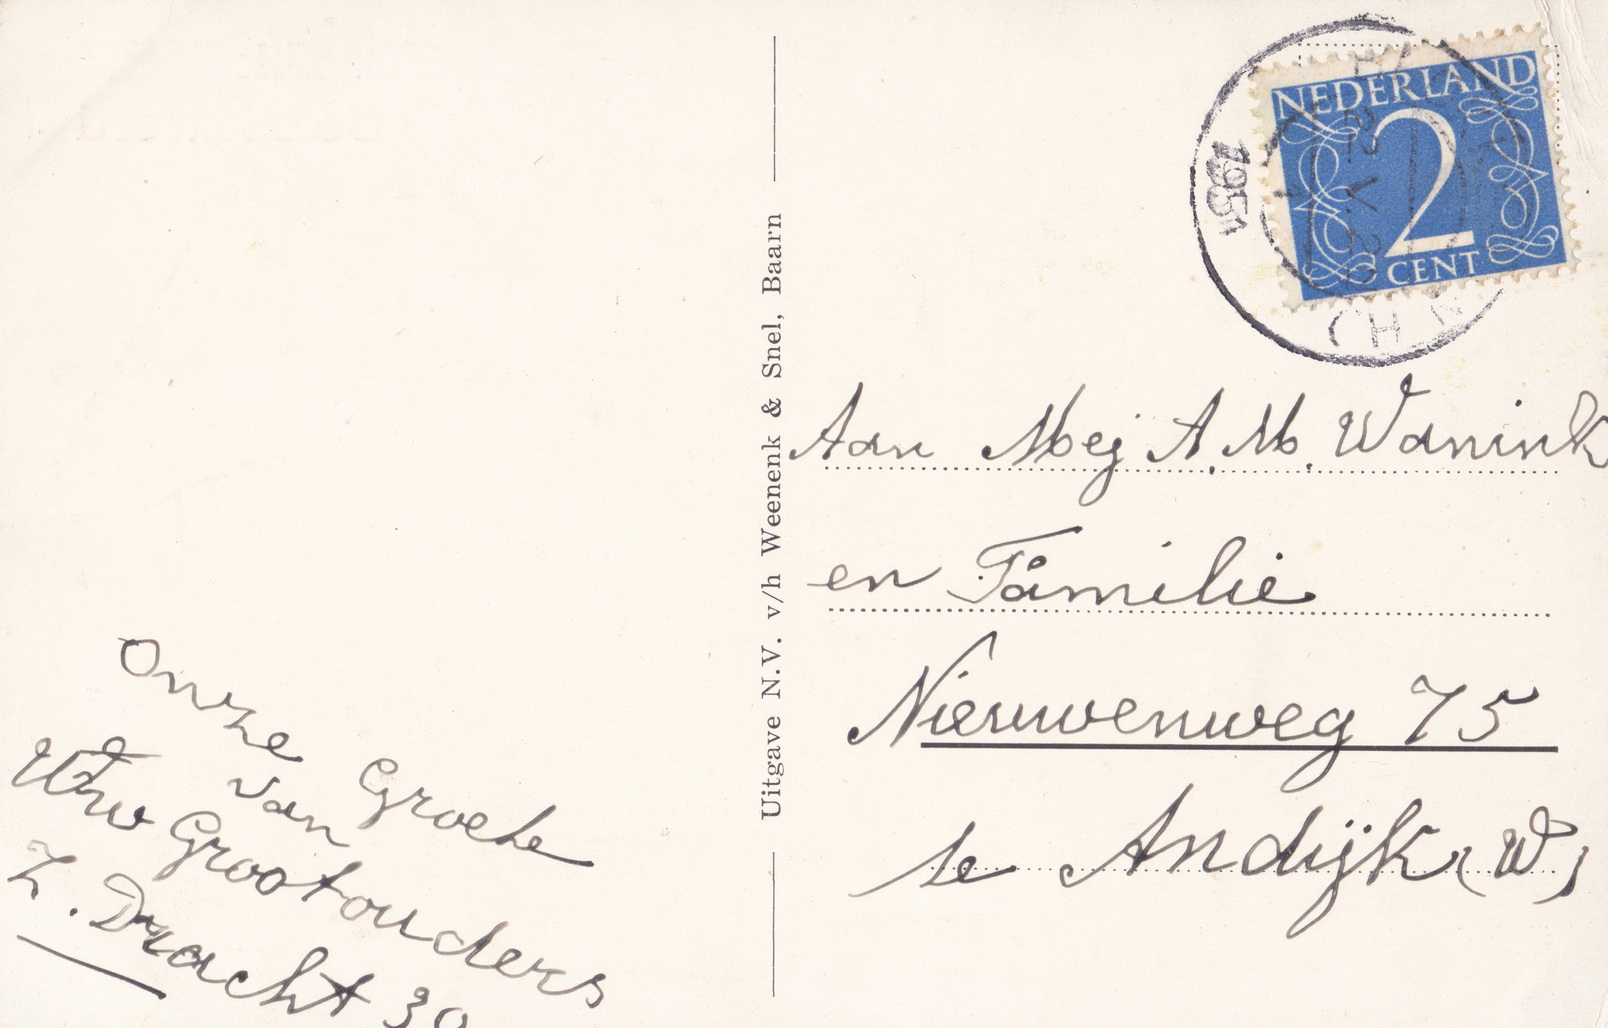 Onze Groete
van
Uw Grootouders
Z. Dracht 39
Uitgave N.V. v/h Weenenk & Snel, Baarn
NEDERLAND
2
CENT
1951
Aan Mej A. M. Wanink
en Familie
Nieuwenweg 75
te Andijk (W)